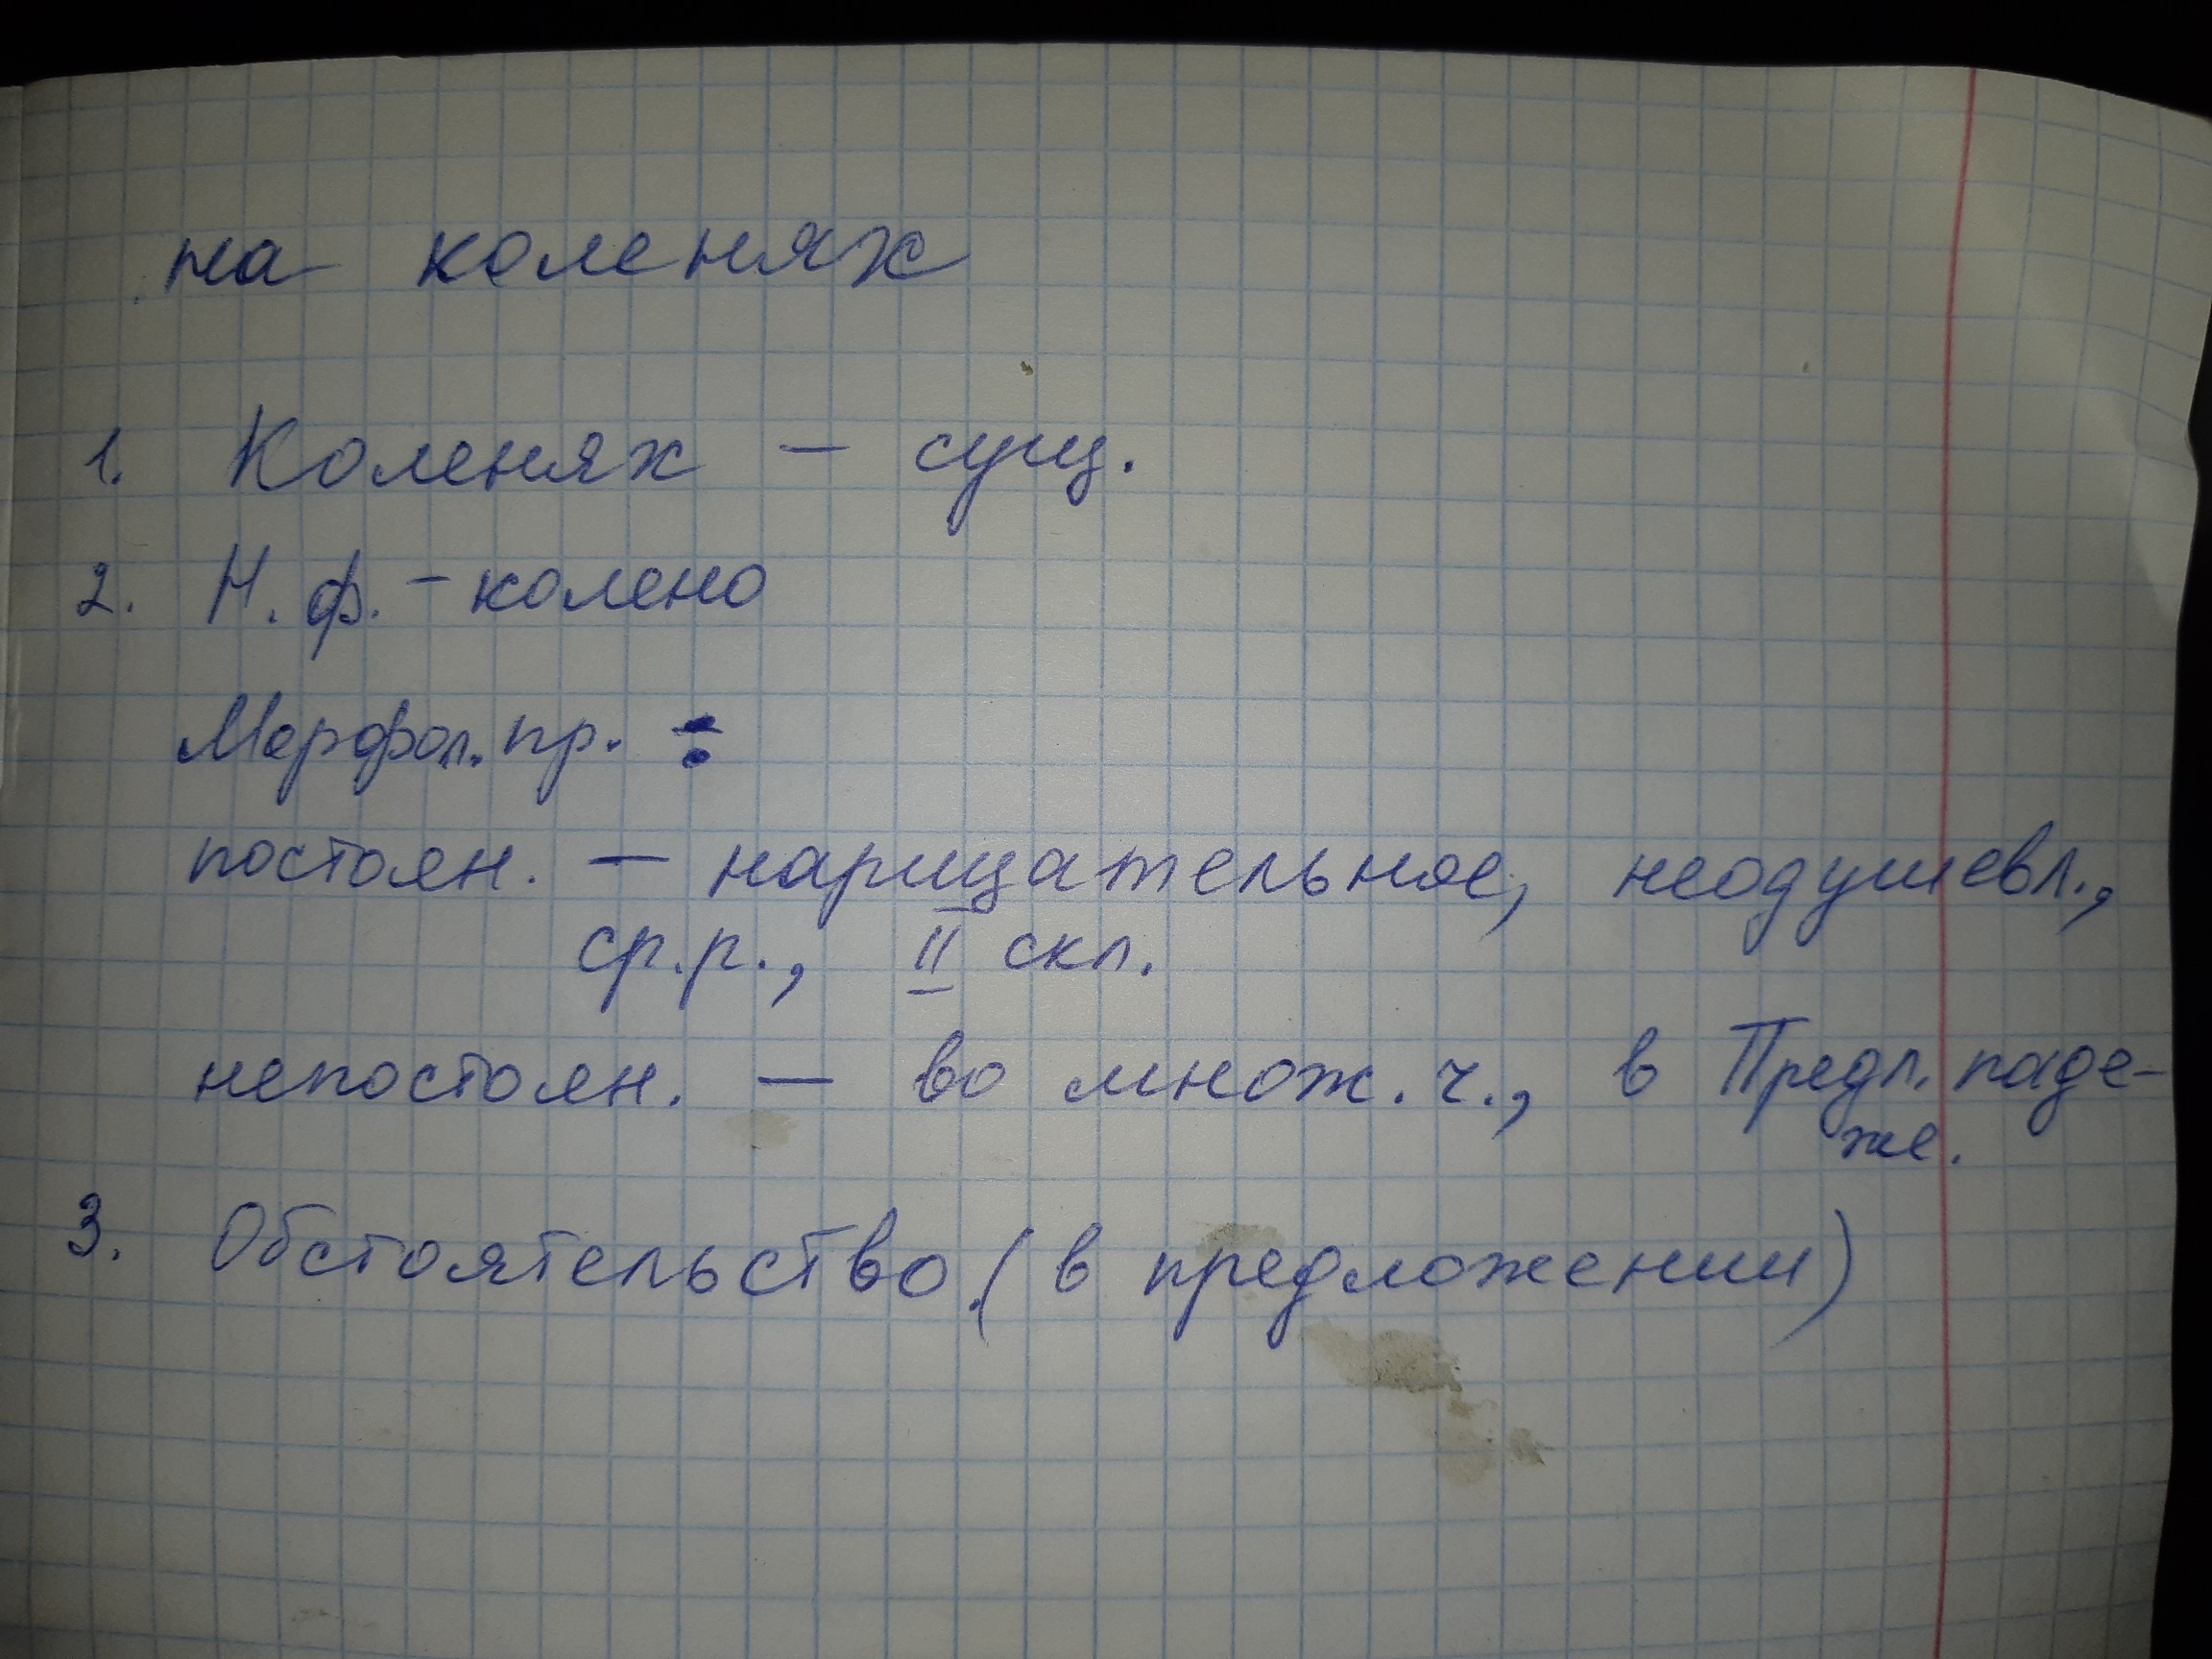 на коленях
1. Коленях – сущ.
2. Н. ф. – колено
Морфол. пр. :
постоян. — нарицательное, неодушевл.,
ср.р., II скл.
непостоян. — во множ. ч., в Предл. паде-
же.
3. Обстоятельство. (в предложении)